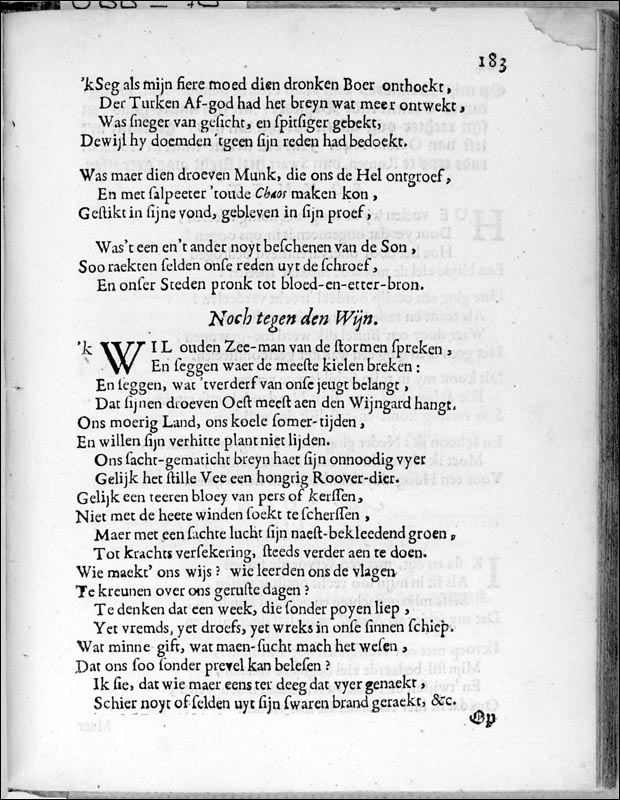 183
'kSeg als mijn fiere moed dien dronken Boer onthoekt,
Der Turken Af-god had het breyn wat meer ontwekt,
Was sneger van gesicht, en spitsiger gebekt,
Dewijl hy doemden 'tgeen sijn reden had bedoekt.
Was maer dien droeven Munk, die ons de Hel ontgroef,
En met salpeeter 'toude Chaos maken kon,
Gestikt in sijne vond, gebleven in sijn proef;
Was't een en't ander noyt beschenen van de Son,
Soo raekten selden onse reden uyt de schroef,
En onser Steden pronk tot bloed-en-etter-bron.
Noch tegen den Wijn.
'k WIL ouden Zee-man van de stormen spreken,
En seggen waer de meeste kielen breken:
En seggen, wat 'tverderf van onse jeugt belangt,
Dat sijnen droeven Oest meest aen den Wijngard hangt.
Ons moerig Land, ons koele somer-tijden,
En willen sijn verhitte plant niet lijden.
Ons sacht-gematicht breyn haet sijn onnoodig vyer
Gelijk het stille Vee een hongrig Roover-dier.
Gelijk een teeren bloey van pers of kerssen,
Niet met de heete winden soekt te scherssen,
Maer met een sachte lucht sijn naest-bekleedend groen,
Tot krachts versekering, steeds verder aen te doen.
Wie maekt' ons wijs? wie leerden ons de vlagen
Te kreunen over ons geruste dagen?
Te denken dat een week, die sonder poyen liep,
Yet vremds, yet droefs, yet wreks in onse sinnen schiep.
Wat minne gift, wat maen-sucht mach het wesen,
Dat ons soo sonder prevel kan belesen?
Ik sie, dat wie maer eens ter deeg dat vyer genaekt,
Schier noyt of selden uyt sijn swaren brand geraekt, &c.
Op